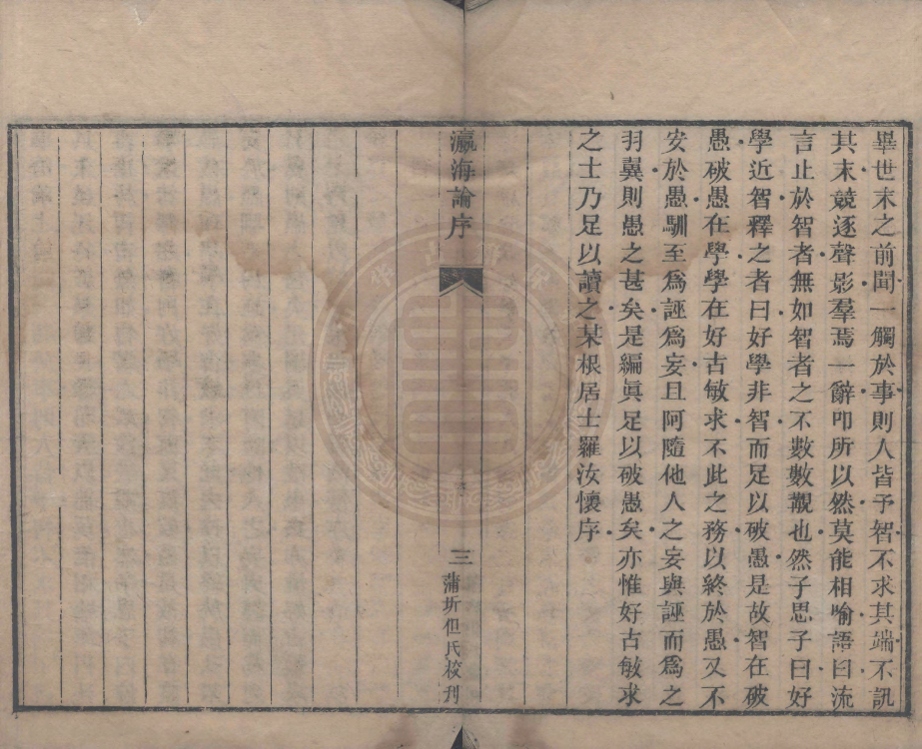 畢世末之前聞一觸於事則人皆予智不求其端不訊
其末競逐聲影羣焉一辭叩所以然莫能相喻語曰流
言止於智者無如智者之不數數覯也然子思子曰好
學近智釋之者曰好學非智而足以破愚是故智在破
愚破愚在學學在好古敏求不此之務以終於愚又不
安於愚馴至爲誣爲妄且阿隨他人之妄與誣而爲之
羽翼則愚之甚矣是編眞足以破愚矣亦惟好古敏求
之士乃足以讀之某根居士羅汝懷序
瀛海論序
三
蒲圻但氏校刊